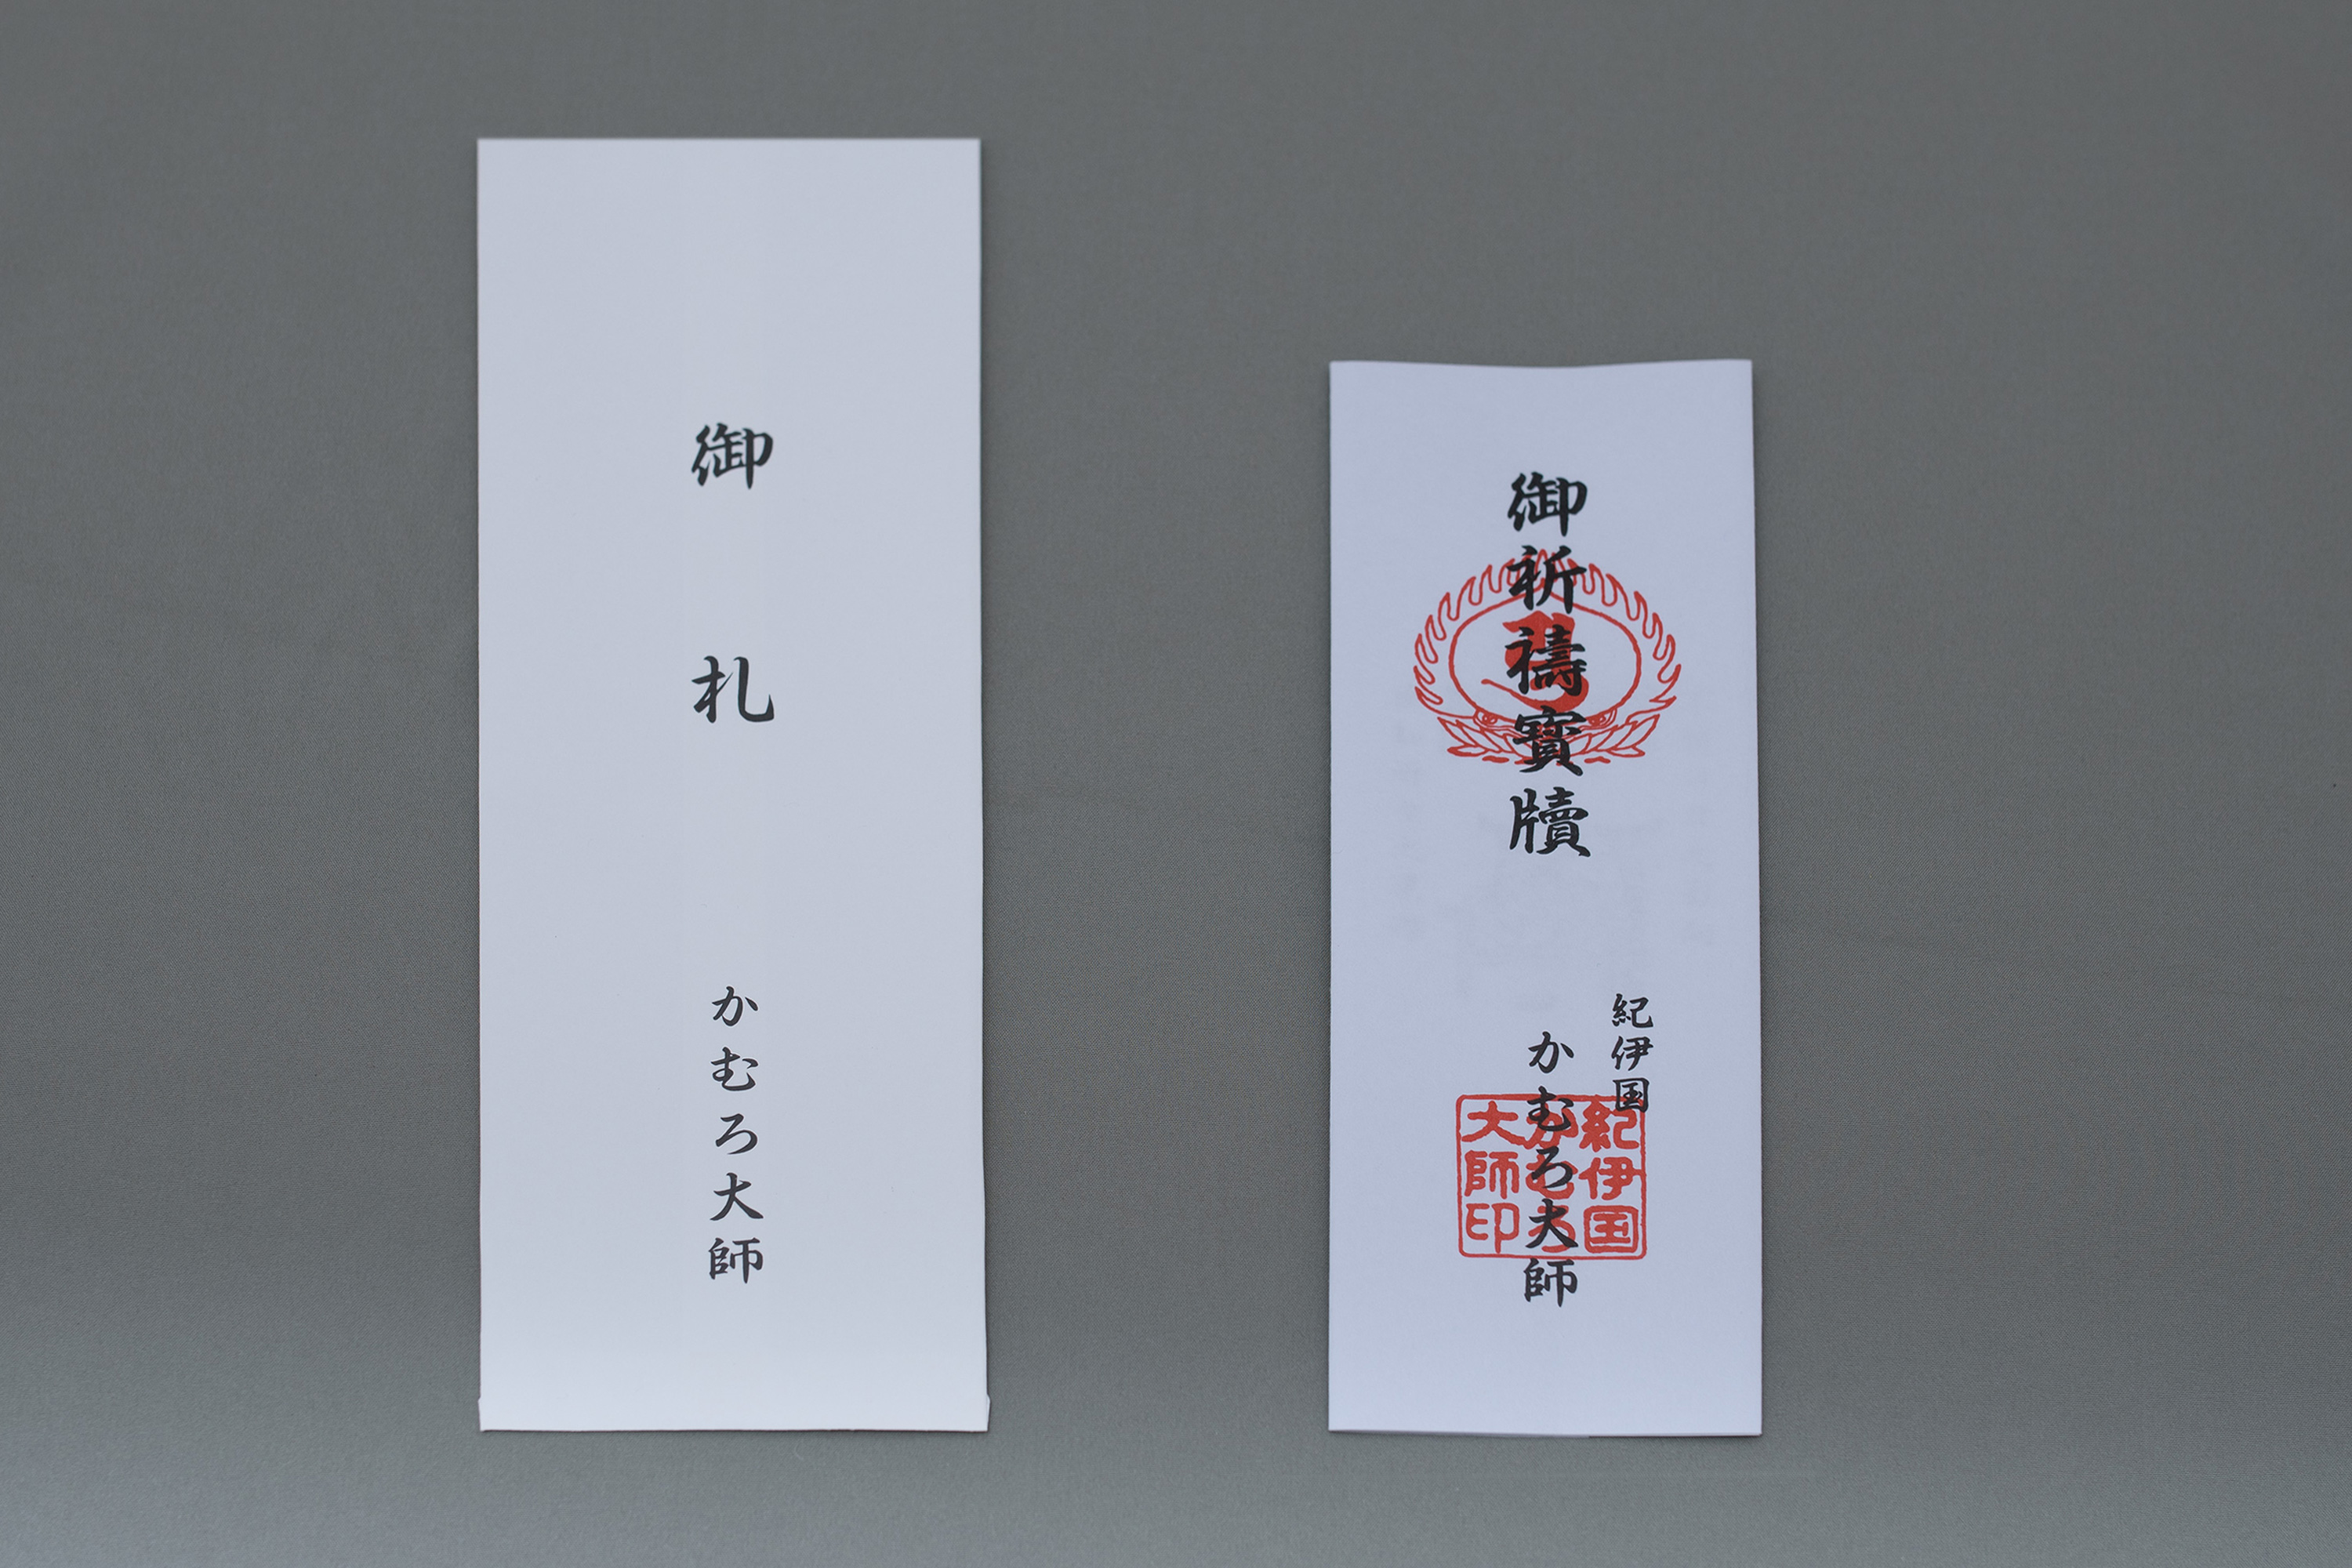 御札
かむろ大師
御祈禱寳牘
紀伊国
かむろ大師
紀伊国
かむろ
大師印